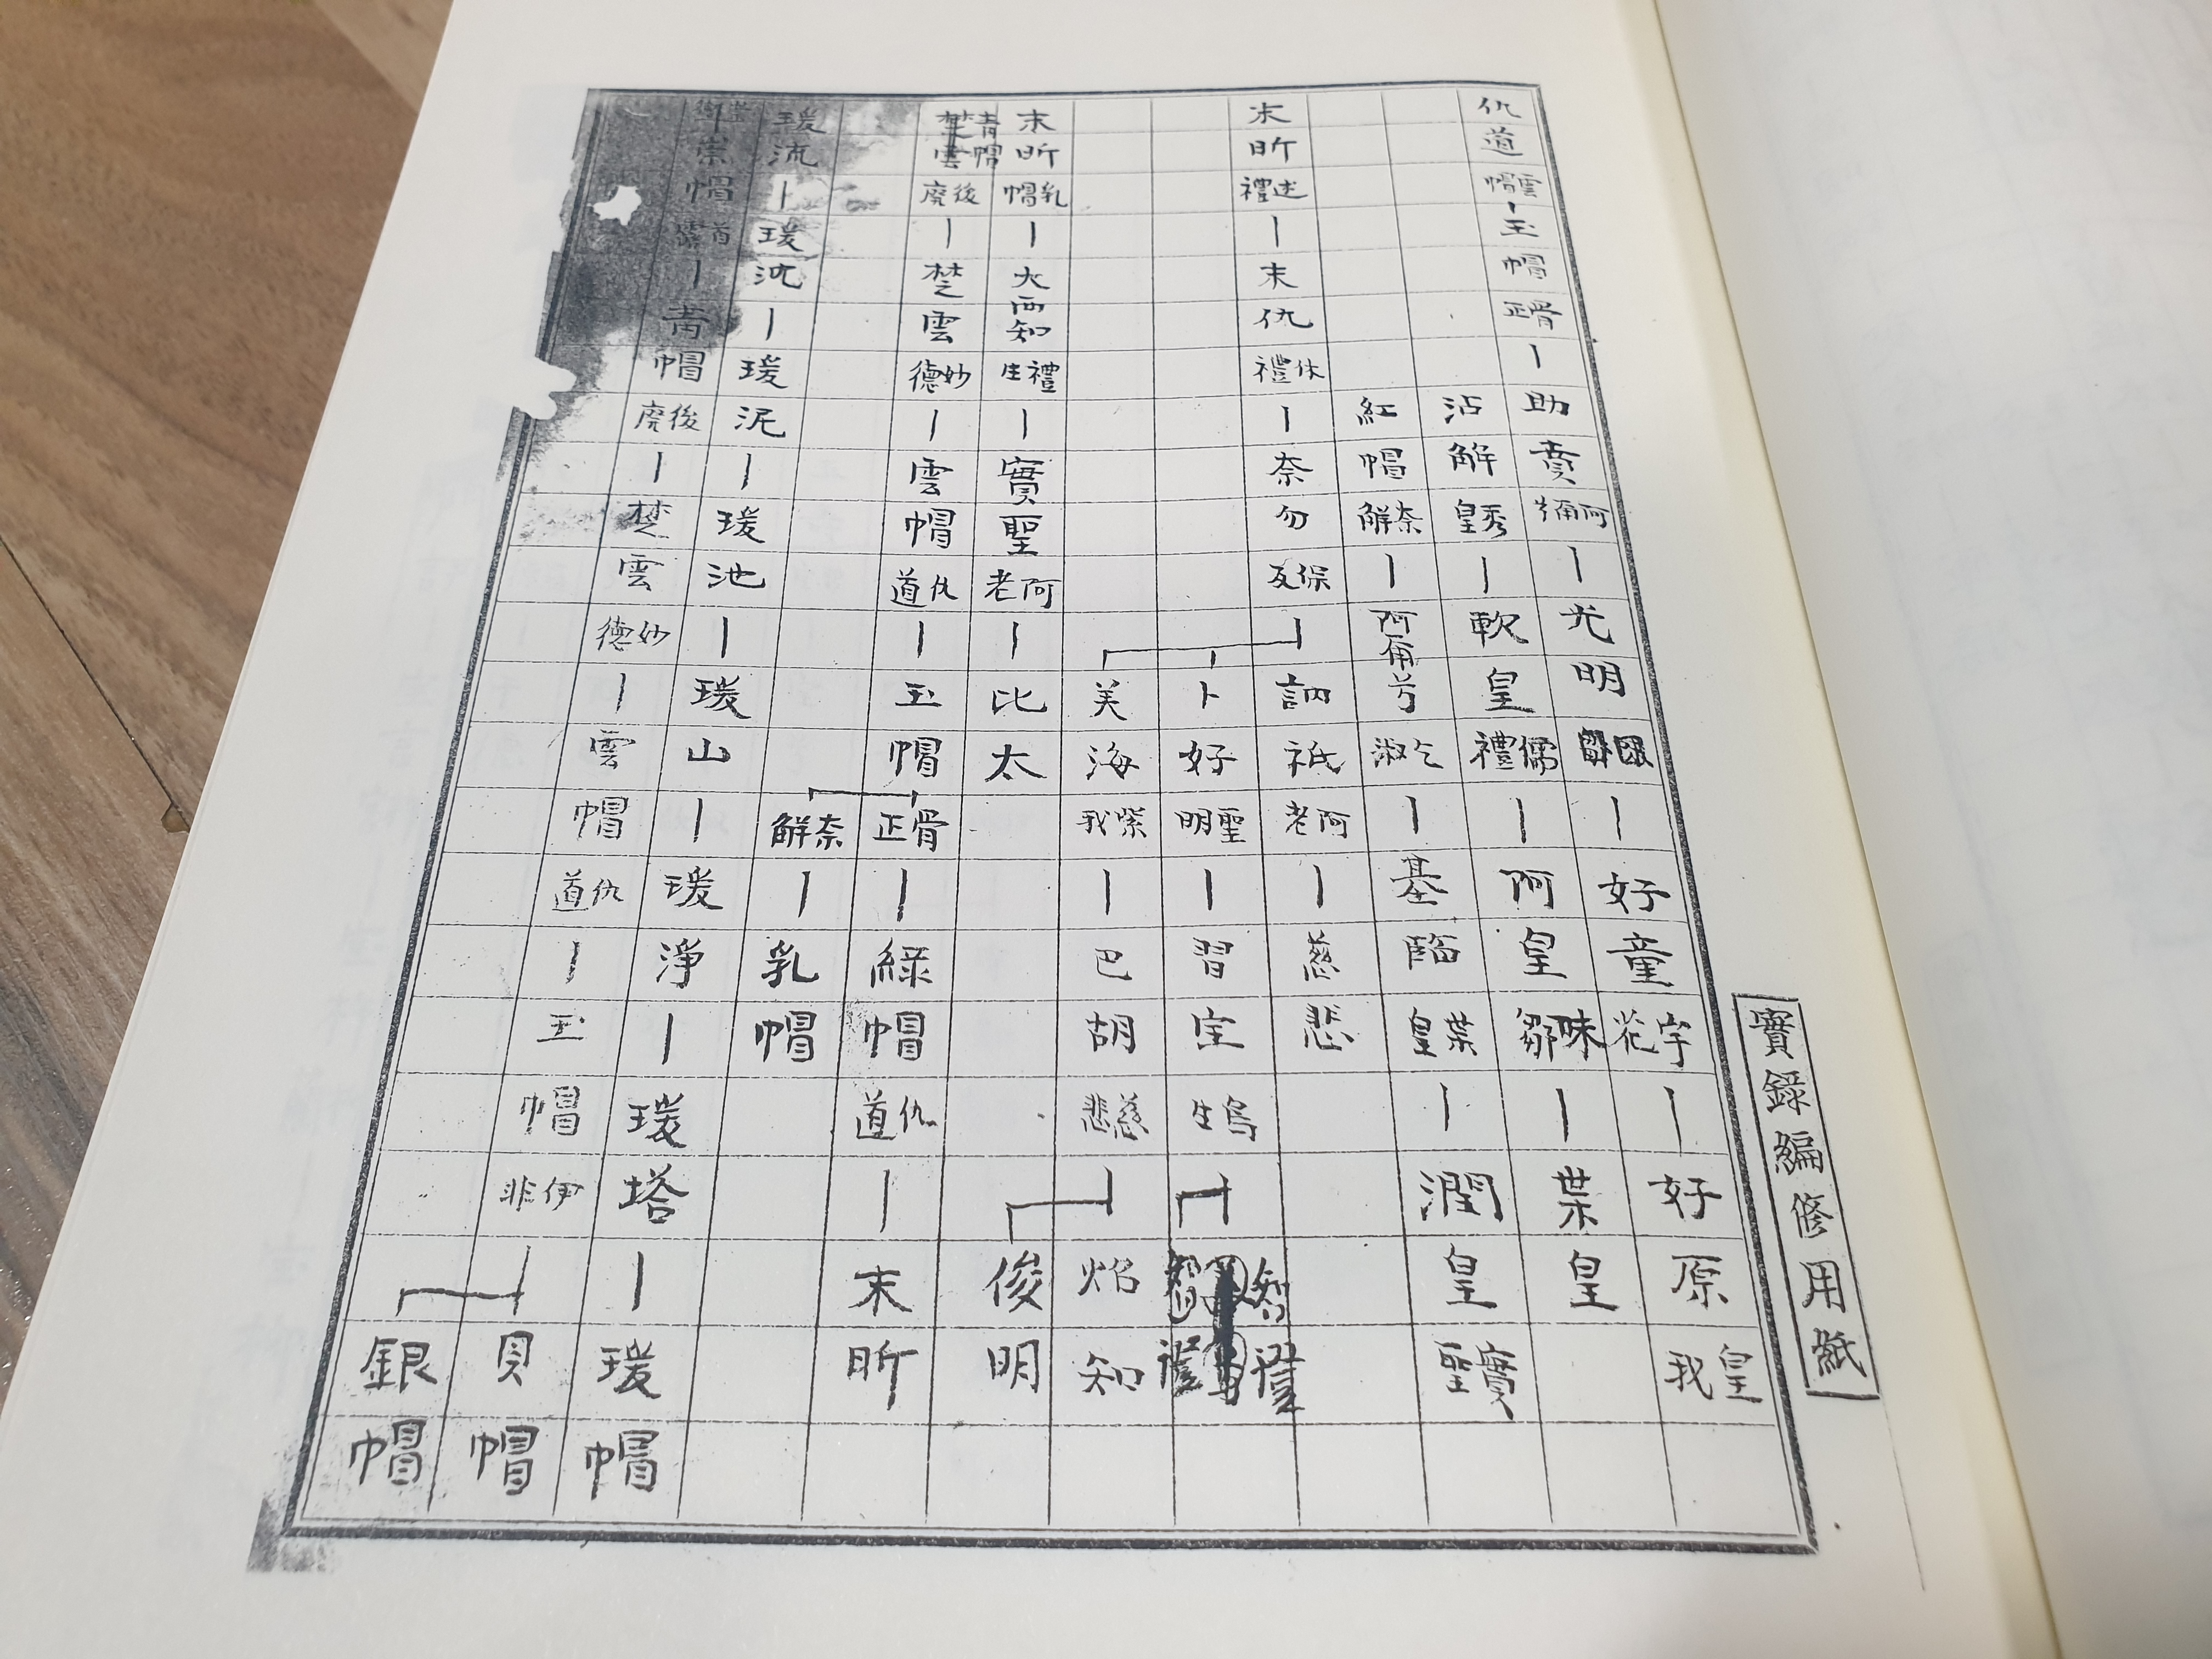 實錄編修用紙
仇道雲帽｜玉帽骨正｜助賁阿彌｜光明｜好童宇花｜好原皇我
沾解秀皇｜軟皇儒禮｜阿皇味鄒｜葉皇
紅帽奈解｜阿角兮乞淑｜基臨葉皇｜潤皇實聖
末昕述禮｜末仇休禮｜奈勿保反｜訥祗阿老｜慈悲
卜好聖明｜習宝鳥生｜智
美海紫我｜巴胡慈悲｜焰知
俊明
末昕乳帽｜大西知禮生｜實聖阿老｜比太
青帽楚雲後廃｜楚雲妙德｜雲帽仇道｜玉帽骨正｜綠帽仇道｜末昕
奈解｜乳帽
瑗流｜瑗沈｜瑗泥｜瑗池｜瑗山｜瑗淨｜瑗塔｜瑗帽
崇帽｜青帽後廃｜楚雲妙德｜雲帽仇道｜玉帽伊非｜貝帽
銀帽